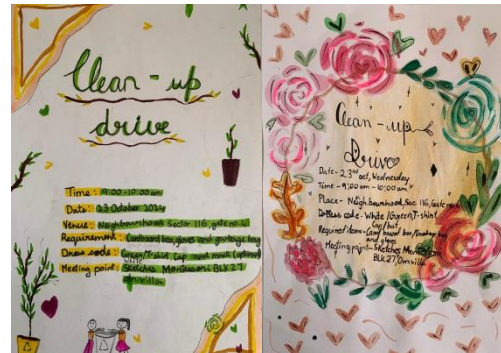 Clean-up
drive
Time : 19:00 - 10:00 am
Date : 23 October 2024
Venue : Neighbourhood Sector 116, gate no.1
Requirement : Cardboard box, gloves and garbage bag
Dress code : Green/T-shirt, Cap, mask (optional)
white
Meeting point : Sketches Montessori BLK 27
Omvilla
Clean-up
Drive
Date - 23rd oct, Wednesday
Time - 9:00 am - 10:00 am
Place - Neighbourhood, Sec 116, gate no
Dress code - White/Green, T-shirt
Cap/hat
Required items - Card board box/Garbage bag
and gloves
Meeting point - Sketches Montessori
BLK 27, Omvilla